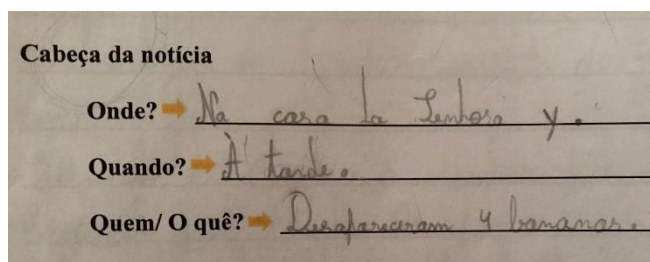 Cabeça da notícia
Onde? Na casa da Senhora y.
Quando? À tarde.
Quem/ O quê? Desapareceram 4 bananas.